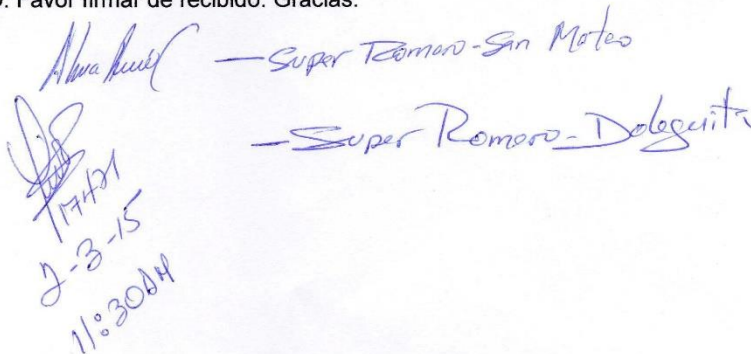 . Favor firmar de recibido. Gracias.
— Super Romero - San Mateo
— Super Romero - Doleguita
17471
2-3-15
11:30AM